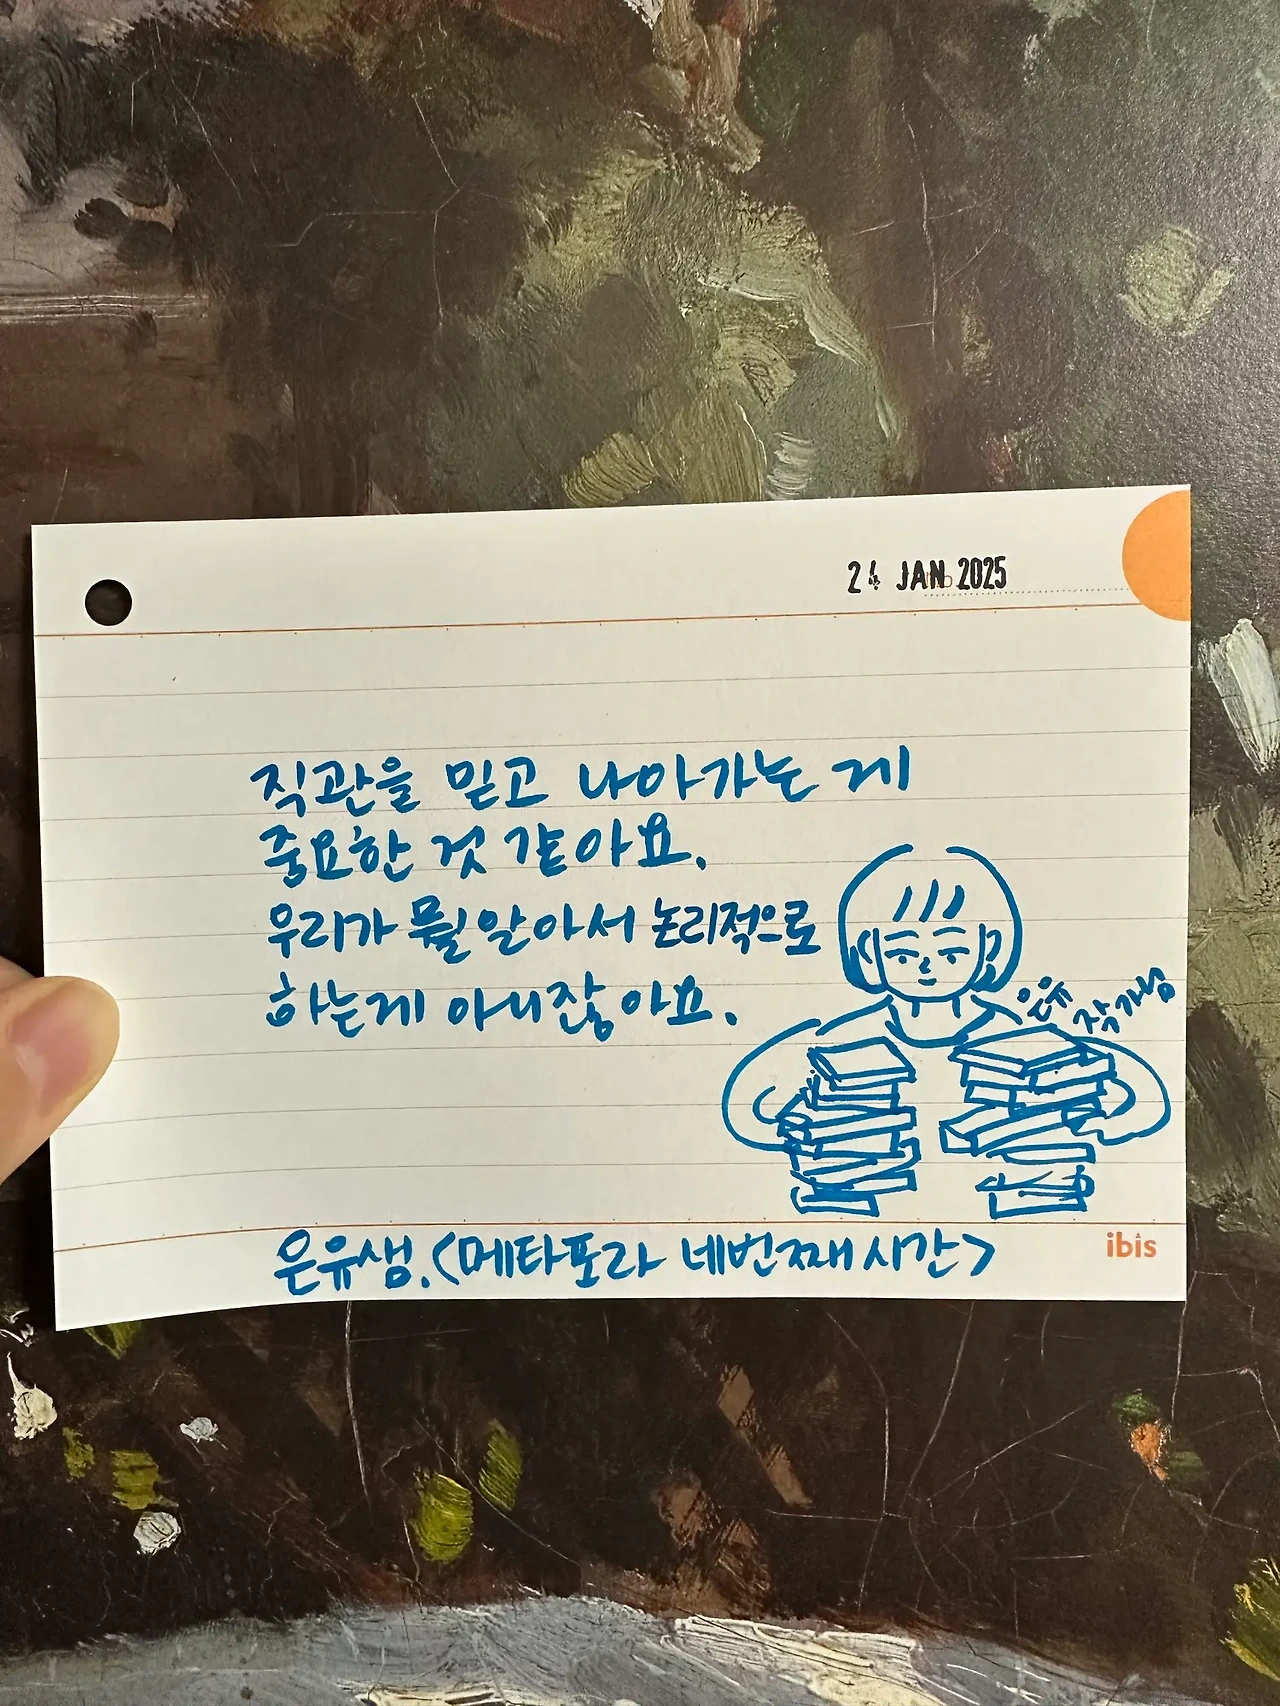 24 JAN 2025
직관을 믿고 나아가는 게
중요한 것 같아요.
우리가 뭘 알아서 논리적으로
하는게 아니잖아요.
은유
작가님
은유샘.<메타포라 네번째시간>
ibis